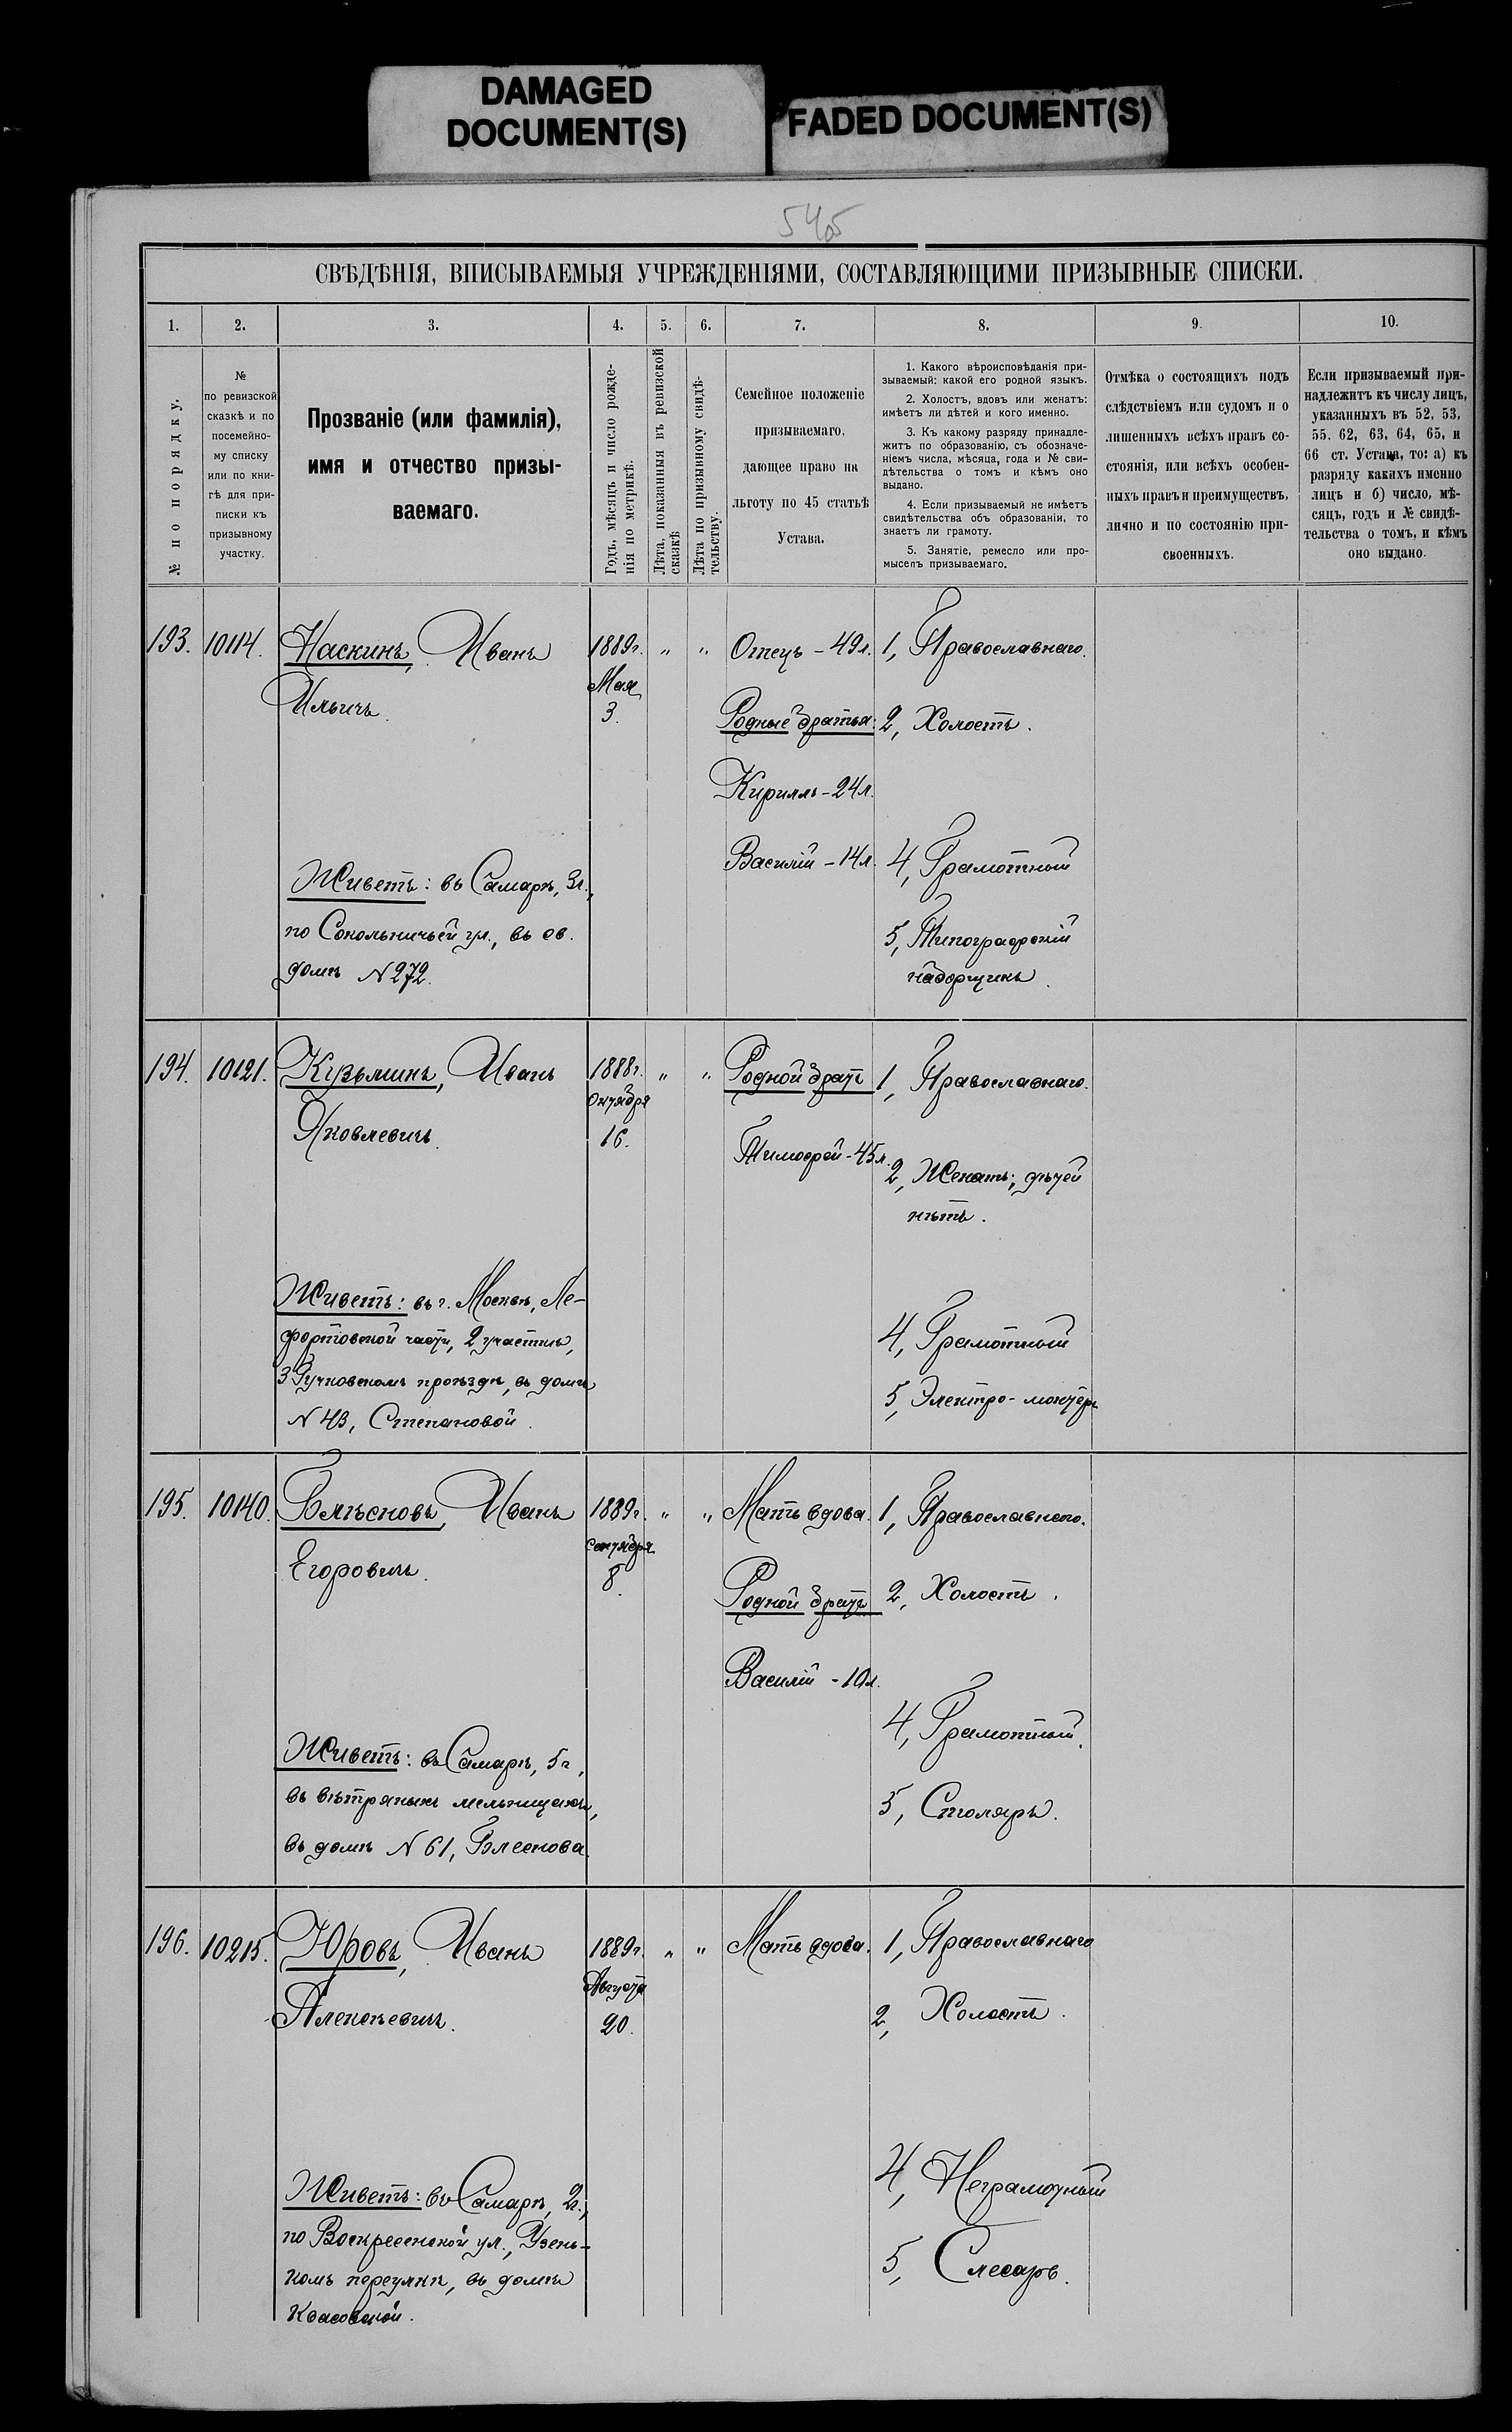 DAMAGED
DOCUMENT(S)
FADED DOCUMENT(S)
СВѢДѢНІЯ, ВПИСЫВАЕМЫЯ УЧРЕЖДЕНІЯМИ, СОСТАВЛЯЮЩИМИ ПРИЗЫВНЫЕ СПИСКИ.
1.
2.
3.
4.
5.
6.
7.
8.
9.
10.
№ по порядку.
№
по ревизской
сказкѣ и по
посемейно-
му списку
или по кни-
гѣ для при-
писки къ
призывному
участку.
Прозваніе (или фамилія),
имя и отчество призы-
ваемаго.
Годъ, мѣсяцъ и число рожде-
нія по метрикѣ.
Лѣта, показанныя въ ревизской
сказкѣ
Лѣта по призывному свидѣ-
тельству.
Семейное положеніе
призываемаго,
дающее право на
льготу по 45 статьѣ
Устава.
1. Какого вѣроисповѣданія при-
зываемый: какой его родной языкъ.
2. Холостъ, вдовъ или женатъ:
имѣетъ ли дѣтей и кого именно.
3. Къ какому разряду принадле-
житъ по образованію, съ обозначе-
ніемъ числа, мѣсяца, года и № сви-
дѣтельства о томъ и кѣмъ оно
выдано.
4. Если призываемый не имѣетъ
свидѣтельства объ образованіи, то
знаетъ ли грамоту.
5. Занятіе, ремесло или про-
мыселъ призываемаго.
Отмѣка о состоящихъ подъ
слѣдствіемъ или судомъ и о
лишенныхъ всѣхъ правъ со-
стоянія, или всѣхъ особен-
ныхъ правъ и преимуществъ,
лично и по состоянію при-
своенныхъ.
Если призываемый при-
надлежитъ къ числу лицъ,
указанныхъ въ 52, 53,
55, 62, 63, 64, 65, и
66 ст. Устава, то: а) къ
разряду какихъ именно
лицъ и б) число, мѣ-
сяцъ, годъ и № свидѣ-
тельства о томъ, и кѣмъ
оно выдано.
193.
10114.
Наскинъ, Иванъ
Ильичъ.
Живетъ: въ Самарѣ, 3ч.,
по Сокольничьей ул., въ св.
домѣ N 272.
1889г.
Мая
3.
"
"
Отецъ - 49л.
Родные братья:
Кириллъ - 24л.
Василій - 14л.
1, Православнаго.
2, Холостъ.
4, Грамотный
5, Типографскій
наборщикъ.
194.
10121.
Кузьминъ, Иванъ
Яковлевичъ.
Живетъ: въ г. Москвѣ, Ле-
фортовской части, 2 участка,
3 проѣздѣ, въ домѣ
N 43, Степановой.
1888г.
Октября
16.
"
"
Родной братъ
Тимофей - 45л.
1, Православнаго.
2, Женатъ; дѣтей
нѣтъ.
4, Грамотный
5, Электро-монтеръ
195.
10140.
Блѣсновъ, Иванъ
Егоровичъ.
Живетъ: въ Самарѣ, 5ч,
въ вѣтряныхъ мельницахъ,
въ домѣ N 61, Блеснова.
1889г.
Сентября
8.
"
"
Мать вдова.
Родной братъ
Василій - 10л.
1, Православнаго.
2, Холостъ.
4, Грамотный.
5, Столяръ.
196.
10215.
Юровъ, Иванъ
Алексѣевичъ.
Живетъ: въ Самарѣ, 2ч.,
по Воскресенской ул., Узень-
комъ переулкѣ, въ домѣ
Квасовской.
1889г.
Августа
20.
"
"
Мать вдова.
1, Православнаго
2, Холостъ.
4, Неграмотный
5, Слесарь.